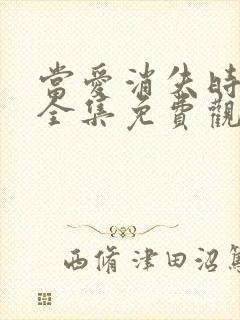 當愛消失時
全集免費觀
西脩津田沼篤